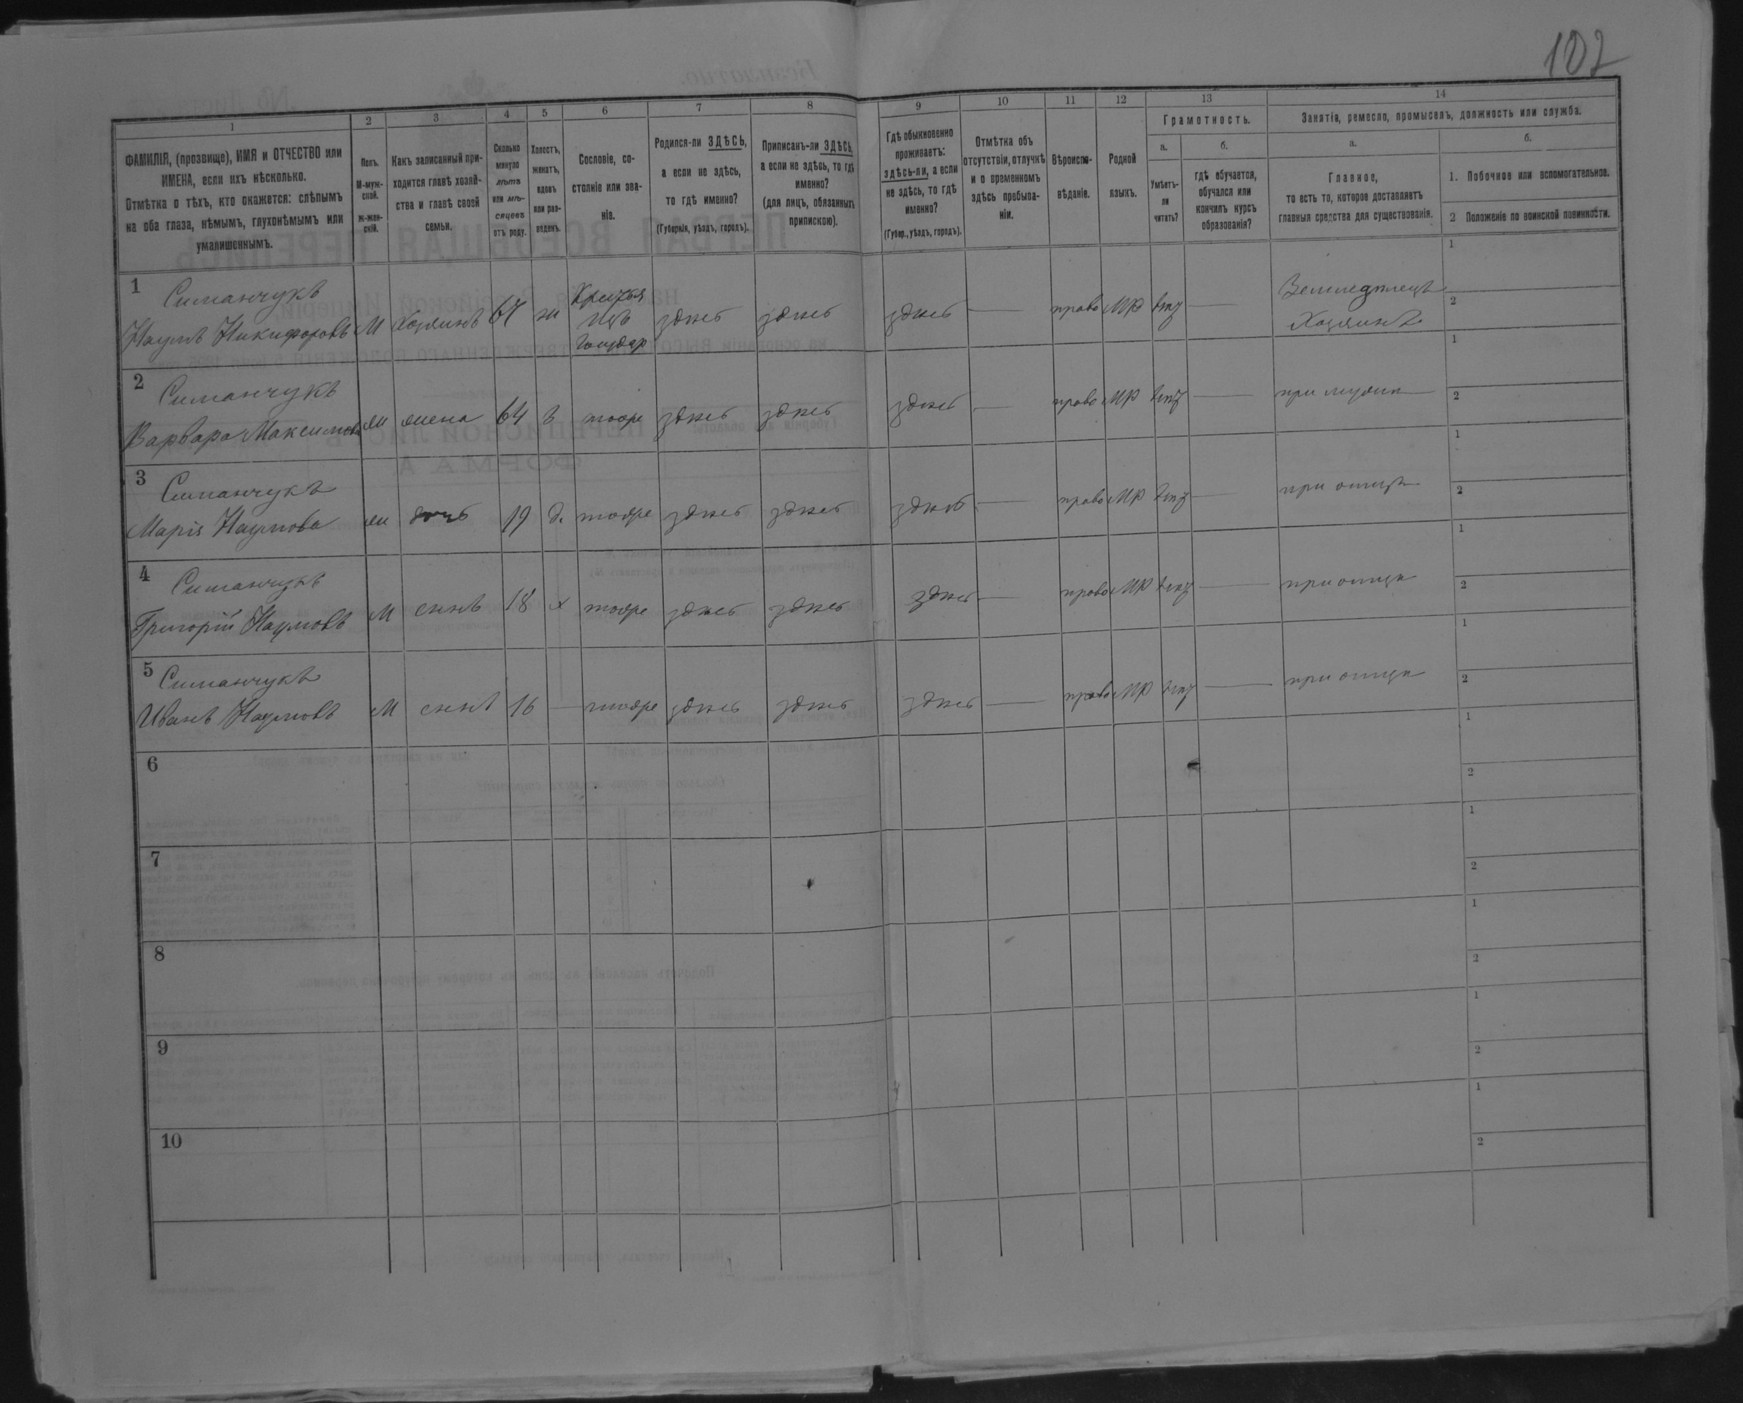 102
1 2 3 4 5 6 7 8 9 10 11 12 13 14
ФАМИЛІЯ, (прозвище), ИМЯ и ОТЧЕСТВО или
ИМЕНА, если ихъ нѣсколько.
Отмѣтка о тѣхъ, кто окажется: слѣпымъ
на оба глаза, нѣмымъ, глухонѣмымъ или
умалишеннымъ.
Полъ.
М-муж-
ской.
Ж-жен-
скій.
Какъ записанный при-
ходится главѣ хозяй-
ства и главѣ своей
семьи.
Сколько
минуло
лѣтъ
или мѣ-
сяцевъ
отъ роду.
Холостъ,
женатъ,
вдовъ
или раз-
веденъ.
Сословіе, со-
стояніе или зва-
ніе.
Родился-ли ЗДѢСЬ,
а если не здѣсь,
то гдѣ именно?
(Губернія, уѣздъ, городъ).
Приписанъ-ли ЗДѢСЬ,
а если не здѣсь, то гдѣ
именно?
(для лицъ, обязанныхъ
припискою).
Гдѣ обыкновенно
проживаетъ:
здѣсь-ли, а если
не здѣсь, то гдѣ
именно?
(Губер., уѣздъ, городъ).
Отмѣтка объ
отсутствіи, отлучкѣ
и о временномъ
здѣсь пребыва-
ніи.
Вѣроиспо-
вѣданіе.
Родной
языкъ.
Грамотность.
а.
Умѣетъ-
ли
читать?
б.
гдѣ обучается,
обучался или
кончилъ курсъ
образованія?
Занятія, ремесло, промыселъ, должность или служба.
а.
Главное,
то есть то, которое доставляетъ
главныя средства для существованія.
б.
1. Побочное или вспомогательное.
2 Положеніе по воинской повинности.
1 Симанчукъ
Наумъ Никифоровъ М Хозяинъ 67 ж здѣсь здѣсь здѣсь — право МР — Хозяинъ 1 2
2 Симанчукъ
Варвара Максимова ж жена 64 з тоже здѣсь здѣсь здѣсь — право МР — 1 2
3 Симанчукъ
Марія Наумова ж дочь 19 д. тоже здѣсь здѣсь здѣсь — право МР — при отцѣ 1 2
4 Симанчукъ
Григорій Наумовъ М сынъ 18 х тоже здѣсь здѣсь здѣсь — право МР — при отцѣ 1 2
5 Симанчукъ
Иванъ Наумовъ М сынъ 16 — тоже здѣсь здѣсь здѣсь — право МР — при отцѣ 1 2
6 1 2
7 1 2
8 1 2
9 1 2
10 1 2